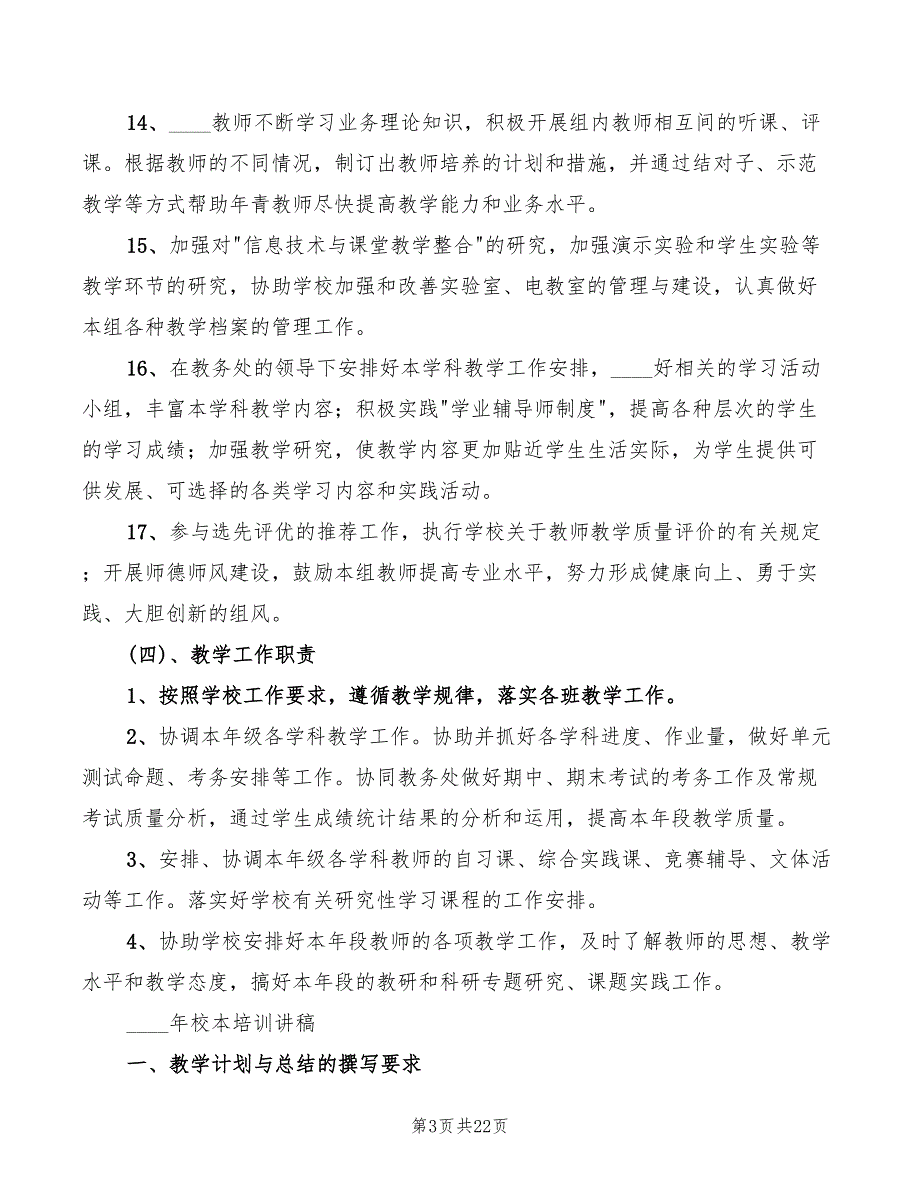 14、____教师不断学习业务理论知识，积极开展组内教师相互间的听课、评
课。根据教师的不同情况，制订出教师培养的计划和措施，并通过结对子、示范
教学等方式帮助年青教师尽快提高教学能力和业务水平。
15、加强对"信息技术与课堂教学整合"的研究，加强演示实验和学生实验等
教学环节的研究，协助学校加强和改善实验室、电教室的管理与建设，认真做好
本组各种教学档案的管理工作。
16、在教务处的领导下安排好本学科教学工作安排，____好相关的学习活动
小组，丰富本学科教学内容；积极实践"学业辅导师制度"，提高各种层次的学生
的学习成绩；加强教学研究，使教学内容更加贴近学生生活实际，为学生提供可
供发展、可选择的各类学习内容和实践活动。
17、参与选先评优的推荐工作，执行学校关于教师教学质量评价的有关规定
；开展师德师风建设，鼓励本组教师提高专业水平，努力形成健康向上、勇于实
践、大胆创新的组风。
(四)、教学工作职责
1、按照学校工作要求，遵循教学规律，落实各班教学工作。
2、协调本年级各学科教学工作。协助并抓好各学科进度、作业量，做好单元
测试命题、考务安排等工作。协同教务处做好期中、期末考试的考务工作及常规
考试质量分析，通过学生成绩统计结果的分析和运用，提高本年段教学质量。
3、安排、协调本年级各学科教师的自习课、综合实践课、竞赛辅导、文体活
动等工作。落实好学校有关研究性学习课程的工作安排。
4、协助学校安排好本年段教师的各项教学工作，及时了解教师的思想、教学
水平和教学态度，搞好本年段的教研和科研专题研究、课题实践工作。
____年校本培训讲稿
一、教学计划与总结的撰写要求
第3页共22页